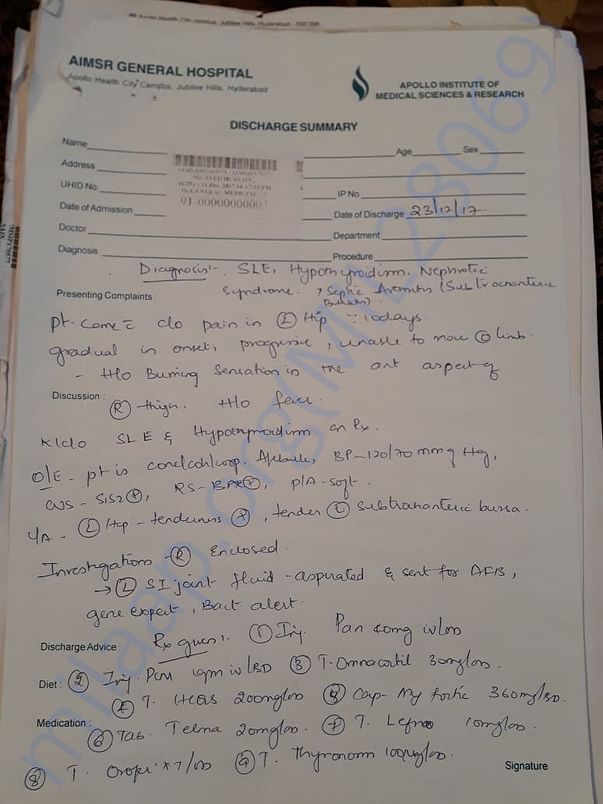 AIMSR GENERAL HOSPITAL
Apollo Health City Campus, Jubilee Hills, Hyderabad
APOLLO INSTITUTE OF
MEDICAL SCIENCES & RESEARCH
DISCHARGE SUMMARY
Name
Age Sex
Address
UHID No. IP No
91-0000000000
Date of Admission Date of Discharge 23/12/17
Doctor Department
Diagnosis Procedure
Diagnosis:- SLE, Hypothyroidism, Nephrotic
Syndrome. ? Septic Arthritis (Subtrochanteric
Presenting Complaints : Bursitis).
pt. came c c/o pain in (L) Hip :: 10days.
gradual in onset, progressive, unable to move (L) limb.
- H/o Burning Sensation in the ant aspect of
Discussion : (R) thigh. H/o fever.
K/c/o SLE & Hypothyroidism on Rx.
O/E - pt is conc/coh/coop, Afebrile, BP-120/70 mmg Hg,
CVS - S1S2 (+), RS-BAE(+), P/A-soft.
L/A - (L) Hip - tenderness (+), tender (L) subtrochanteric bursa.
Investigations - (R) Enclosed.
→ (L) SI joint fluid - aspirated & sent for AFB,
gene expert, Bact alert.
Discharge Advice : Rx given:- (1) Inj. Pan 40mg iv/OD
Diet : (2) Inj. PCM 1gm iv/BD (3) T. Omnacortil 30mg/OD.
(4) T. HCQS 200mg/OD (5) Cap- My fortic 360mg/BD.
Medication : (6) Tab. Telma 20mg/OD. (7) T. Lefno 10mg/OD.
(8) T. x7/OD (9) T. Thyronorm 100µg/OD.
Signature
milaap.org(MIL280069)